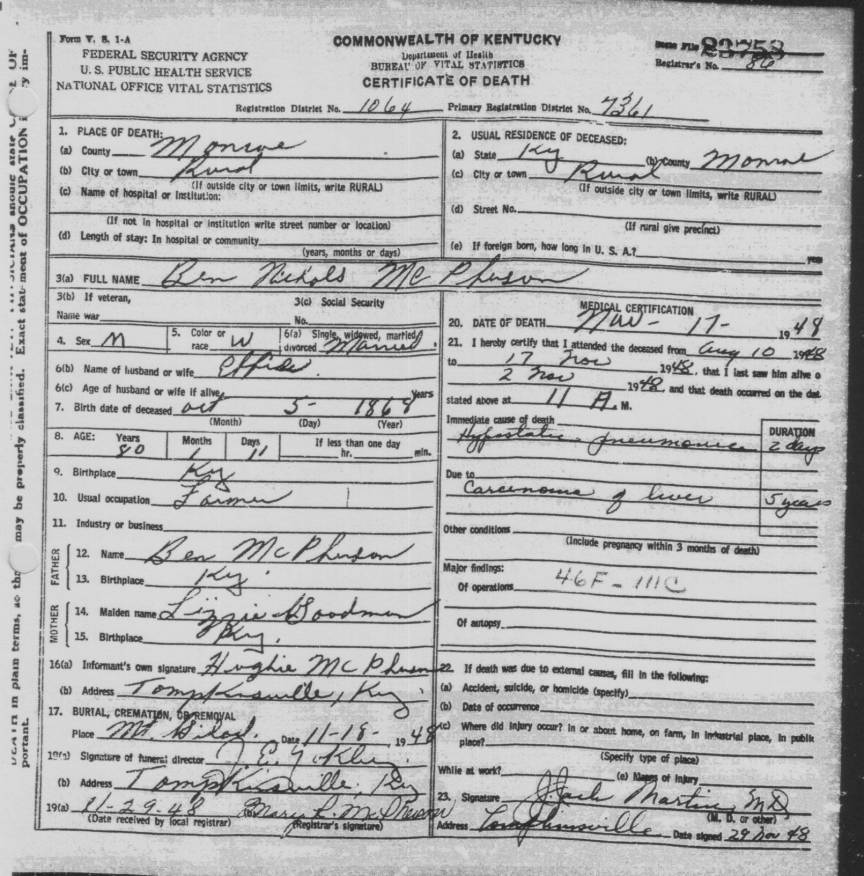 Form V. S. 1-A
FEDERAL SECURITY AGENCY
U. S. PUBLIC HEALTH SERVICE
NATIONAL OFFICE VITAL STATISTICS
COMMONWEALTH OF KENTUCKY
Department of Health
BUREAU OF VITAL STATISTICS
CERTIFICATE OF DEATH
File 23753
Registrar's No. 86
Registration District No. 1064 Primary Registration District No. 7361
1. PLACE OF DEATH:
(a) County Monroe
(b) City or town Rural
(If outside city or town limits, write RURAL)
(c) Name of hospital or institution:
(If not in hospital or institution write street number or location)
(d) Length of stay: In hospital or community
(years, months or days)
2. USUAL RESIDENCE OF DECEASED:
(a) State Ky (b) County Monroe
(c) City or town Rural
(If outside city or town limits, write RURAL)
(d) Street No.
(If rural give precinct)
(e) If foreign born, how long in U. S. A.?
3(a) FULL NAME Ben Nichols McPherson
3(b) If veteran,
Name war
3(c) Social Security
No.
4. Sex M
5. Color or
race W
6(a) Single, widowed, married,
divorced Married
6(b) Name of husband or wife
6(c) Age of husband or wife if alive Years
7. Birth date of deceased Oct 5- 1868
(Month) (Day) (Year)
8. AGE: Years Months Days If less than one day
80 1 11 hr. min.
9. Birthplace Ky
10. Usual occupation Farmer
11. Industry or business
FATHER
12. Name Ben McPherson
13. Birthplace Ky.
MOTHER
14. Maiden name Lizzie Goodman
15. Birthplace Ky.
16(a) Informant's own signature Hughie McPherson
(b) Address Tompkinsville, Ky.
17. BURIAL, CREMATION, OR REMOVAL
Place Mt. Date 11-18- 1948
(a) Signature of funeral director
(b) Address Tompkinsville, Ky
19(a) 11-29-48 Mary L. McPherson
(Date received by local registrar) (Registrar's signature)
MEDICAL CERTIFICATION
20. DATE OF DEATH Nov- 17- 1948
21. I hereby certify that I attended the deceased from Aug 10 1948
to 17 Nov 1948, that I last saw him alive o
2 Nov 1948, and that death occurred on the dat
stated above at 11 A. M.
Immediate cause of death
DURATION
Hypostatic pneumonia 2 days
Due to
Carcinoma of liver 5 years
Other conditions
(Include pregnancy within 3 months of death)
Major findings:
Of operations 46F - 111C
Of autopsy
22. If death was due to external causes, fill in the following:
(a) Accident, suicide, or homicide (specify)
(b) Date of occurrence
(c) Where did injury occur? In or about home, on farm, in industrial place, in public
place?
(Specify type of place)
While at work? (e) Means of injury
23. Signature Martin, M.D.
(M. D. or other)
Address Tompkinsville Date signed 29 Nov 48
DEATH in plain terms, so tha may be properly classified. Exact statement of OCCUPATION y im-
portant.